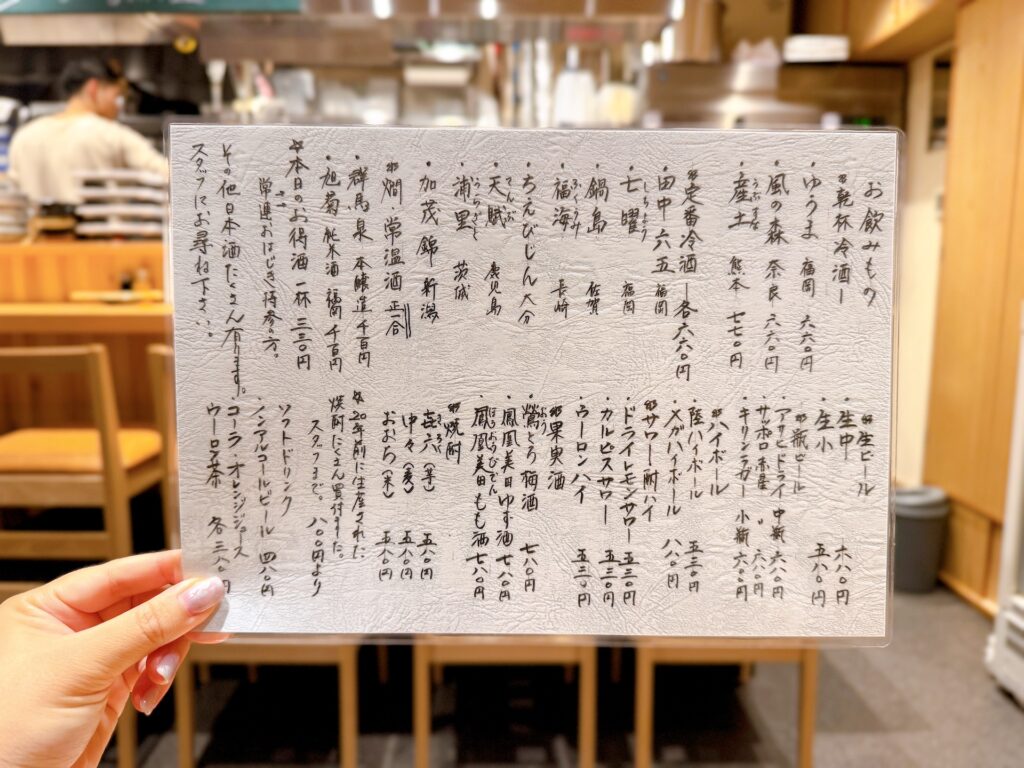 お飲みもの
*乾杯冷酒ー
・ゆうま 福岡 六六〇円
・風の森 奈良 六六〇円
・産土 熊本 七七〇円
*定番冷酒 ー各六六〇円
・田中六五 福岡
・七曜 福岡
・鍋島 佐賀
・福海 長崎
・ちえびじん 大分
・天賦 鹿児島
・浦里 茨城
・加茂錦 新潟
*燗 常温酒 正一合
・群馬泉 本醸造 千百円
・旭菊 純米酒 福岡 千百円
☆本日のお得酒 一杯 三三〇円
常連おはじき持参の方。
その他日本酒たくさん有ります。
スタッフにお尋ね下さい。
*生ビール
・生中 六八〇円
・生小 五八〇円
*瓶ビール
・アサヒドライ 中瓶 六八〇円
・サッポロ赤星 〃 六八〇円
・キリンラガー 小瓶 六〇〇円
*ハイボール
・陸ハイボール 五三〇円
・メガハイボール 八八〇円
*サワー・酎ハイ
・ドライレモンサワー 五三〇円
・カルピスサワー 五三〇円
・ウーロンハイ 五三〇円
*果実酒
・鶯とろ梅酒 七八〇円
・鳳凰美田ゆず酒 七八〇円
・鳳凰美田もも酒 七八〇円
*焼酎
・㐂六(芋) 五八〇円
・中々(麦) 五八〇円
・おおち(米) 五八〇円
☆20年前に生産された
焼酎たくさん買付ました。
スタッフまで。 八〇〇円より
ソフトドリンク
・ノンアルコールビール 四八〇円
・コーラ・オレンジジュース
ウーロン茶 各三八〇円